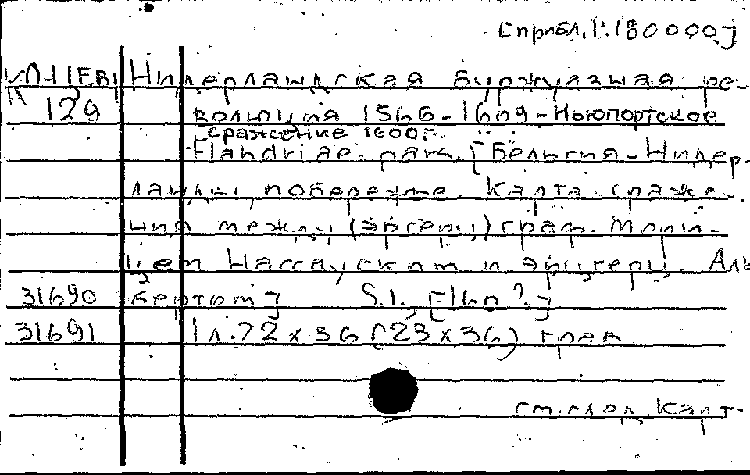 [прибл. 1:180000]
КП-II EBI Нидерландская буржуазная ре-
129 волюция 1566-1609-Ньюпортское
сражение 1600г.
Flandriae. pars. [Бельгия-Нидер-
ланды, побережье. Карта сраже-
ния между (эрцгерц) граф. Мори-
цем Нассауским и эрцгерц. Аль
31690 бертом] S.l., [16..?.]
31691 1 л. 72 x 36 (23 x 36) грав
см. след. Карт-